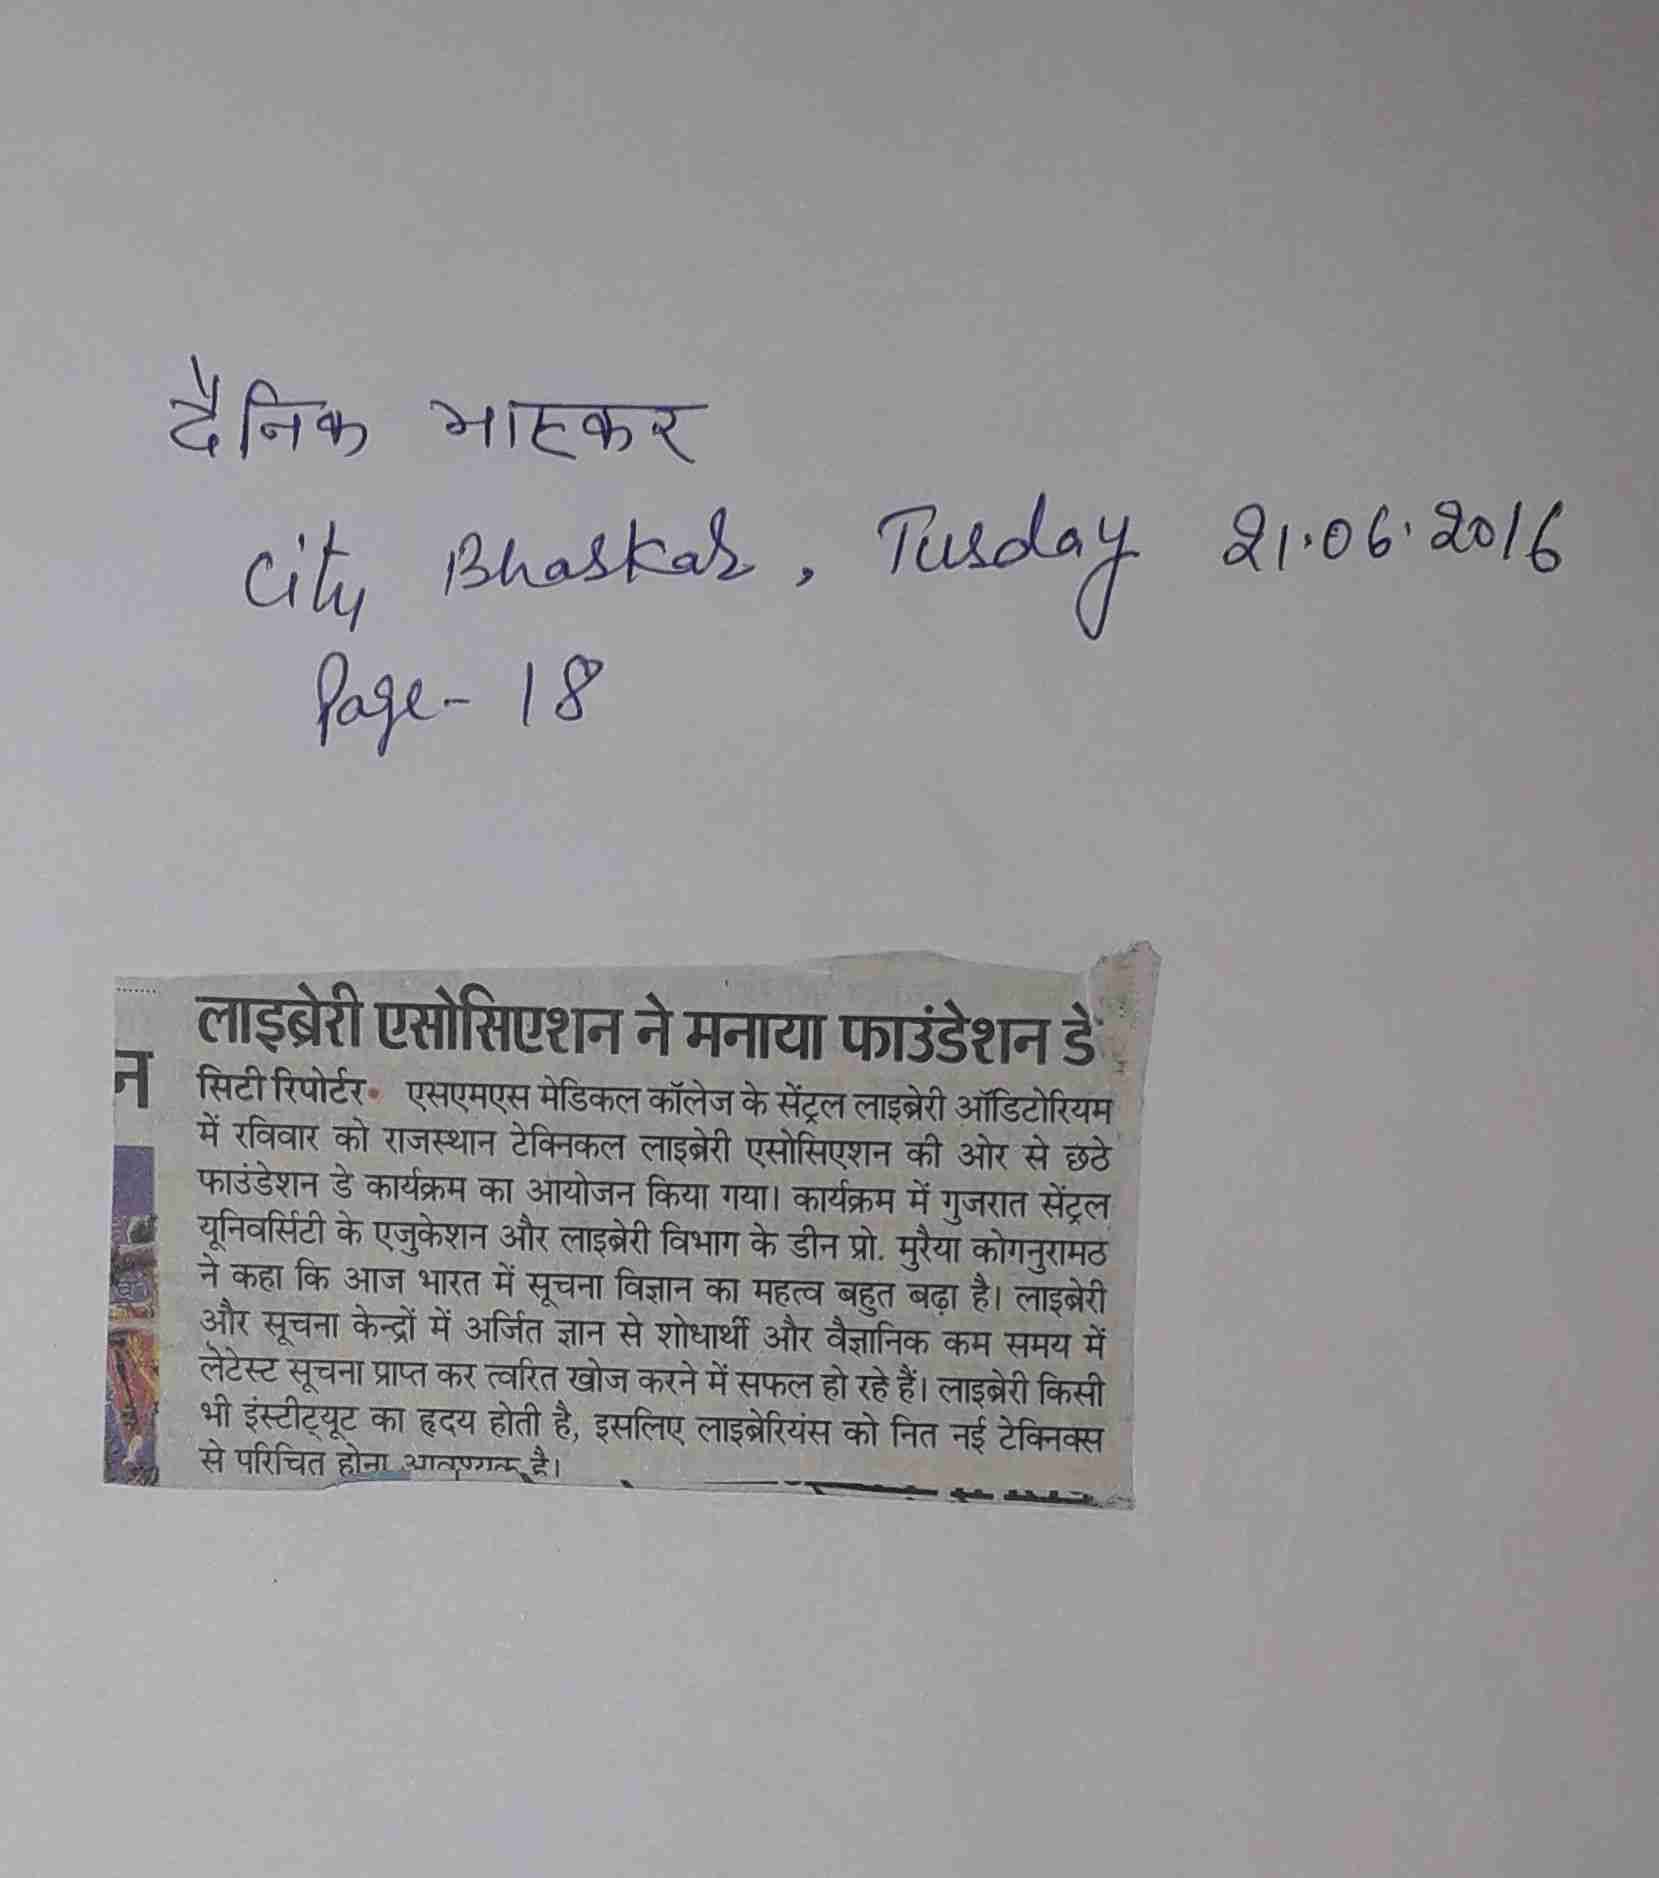 दैनिक भास्कर
City Bhaskar, Tusday 21.06.2016
Page - 18
लाइब्रेरी एसोसिएशन ने मनाया फाउंडेशन डे
न
सिटी रिपोर्टर• एसएमएस मेडिकल कॉलेज के सेंट्रल लाइब्रेरी ऑडिटोरियम
में रविवार को राजस्थान टेक्निकल लाइब्रेरी एसोसिएशन की ओर से छठे
फाउंडेशन डे कार्यक्रम का आयोजन किया गया। कार्यक्रम में गुजरात सेंट्रल
यूनिवर्सिटी के एजुकेशन और लाइब्रेरी विभाग के डीन प्रो. मुरैया कोगनुरामठ
ने कहा कि आज भारत में सूचना विज्ञान का महत्व बहुत बढ़ा है। लाइब्रेरी
और सूचना केन्द्रों में अर्जित ज्ञान से शोधार्थी और वैज्ञानिक कम समय में
लेटेस्ट सूचना प्राप्त कर त्वरित खोज करने में सफल हो रहे हैं। लाइब्रेरी किसी
भी इंस्टीट्यूट का हृदय होती है, इसलिए लाइब्रेरियंस को नित नई टेक्निक्स
से परिचित होना आवश्यक है।